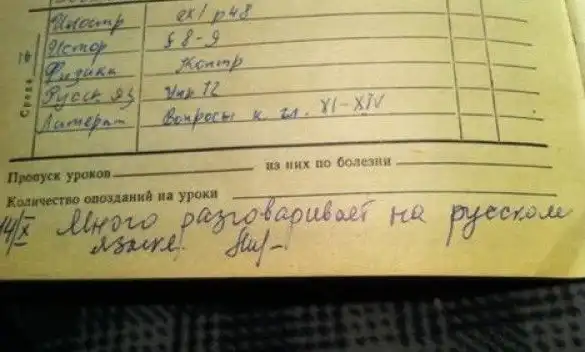 Иностр ex1 p48
Истор § 8-9
Физики Контр
Русск яз Упр 12
Литерат Вопросы к гл. XI-XIV
Среда 16
Пропуск уроков из них по болезни
Количество опозданий на уроки
14/X Много разговаривает на русском
языке!